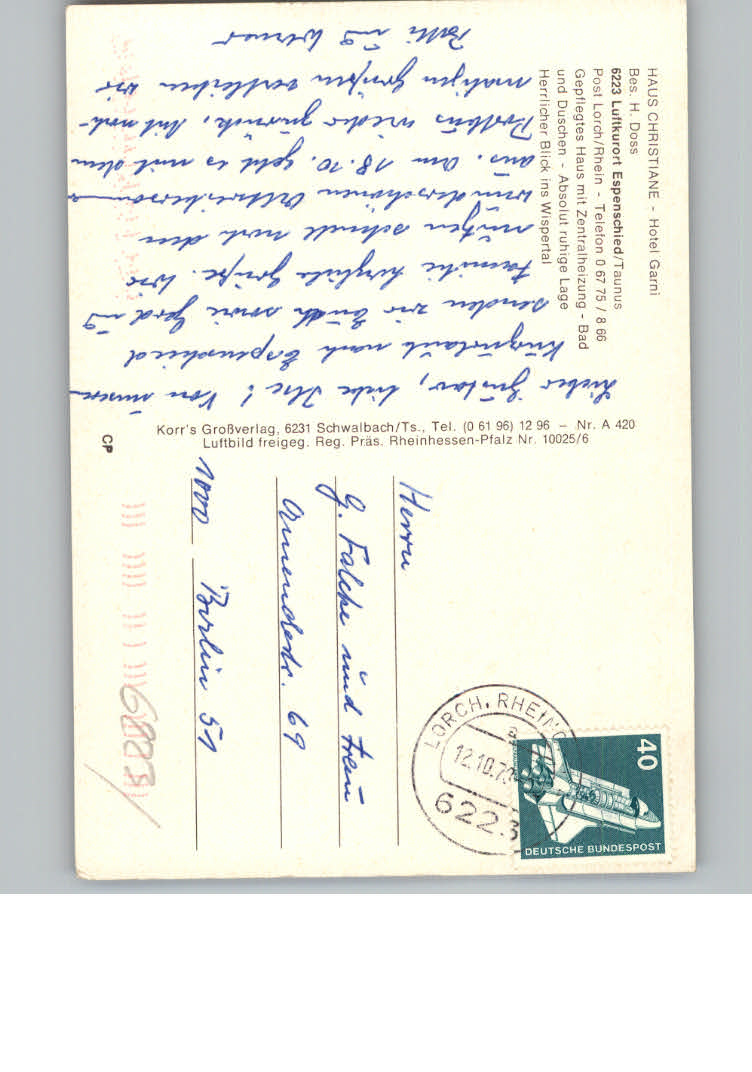 HAUS CHRISTIANE - Hotel Garni
Bes. H. Doss
6223 Luftkurort Espenschied/Taunus
Post Lorch/Rhein - Telefon 0 67 75 / 8 66
Gepflegtes Haus mit Zentralheizung - Bad
und Duschen - Absolut ruhige Lage
Herrlicher Blick ins Wispertal
Lieber Gustav, liebe Ilse! Von unserem
Kurzurlaub nach Espenschied
senden wir Euch sowie Gerd und
Familie herzliche Grüße. Wir
nutzen schnell noch den
wunderschönen Altweibersommer
aus. Am 18.10. geht es mit dem
wieder zurück. Mit noch-
maligen Grüßen verbleiben wir
und Werner
Korr's Großverlag, 6231 Schwalbach/Ts., Tel. (0 61 96) 12 96 – Nr. A 420
Luftbild freigeg. Reg. Präs. Rheinhessen-Pfalz Nr. 10025/6
CP
Herrn
G. Falcke und Frau
69
1000 Berlin 51
LORCH, RHEING
12.10.7
6223
40
DEUTSCHE BUNDESPOST